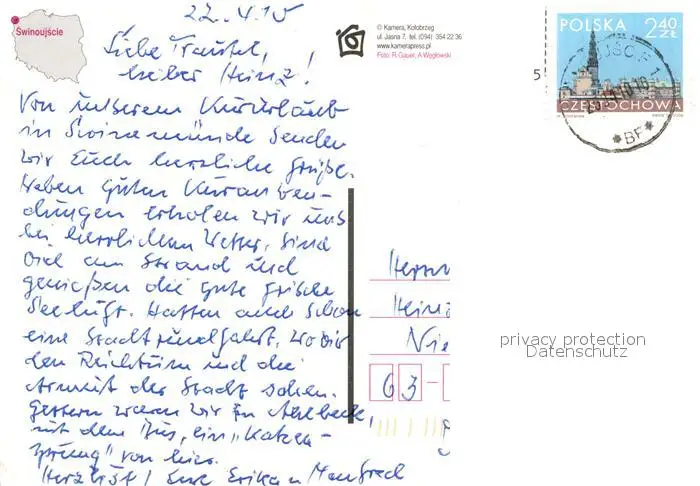 22.4.10
Świnoujście
Liebe Traudel,
lieber Heinz!
Von unserem Kururlaub
in Swinemünde senden
wir Euch herzliche Grüße.
Neben guten Kuranwen-
dungen erholen wir uns
bei herrlichem Wetter. Sind
viel am Strand und
genießen die gute frische
Seeluft. Hatten auch schon
eine Stadtrundfahrt, wo wir
den Reichtum und die
Armut der Stadt sahen.
Gestern waren wir in Ahlbeck,
mit dem Bus, ein „Katzen-
sprung" von hier.
Herzlichst! Eure Erika u. Manfred
© Kamera, Kołobrzeg
ul. Jasna 7, tel. (094) 354 22 36
www.kamerapress.pl
Foto: R. Gauer, A. Węglowski
5
POLSKA 2,40
ZŁ
CZĘSTOCHOWA
*BF*
Herrn
Heinz
Nie
63-
privacy protection
Datenschutz